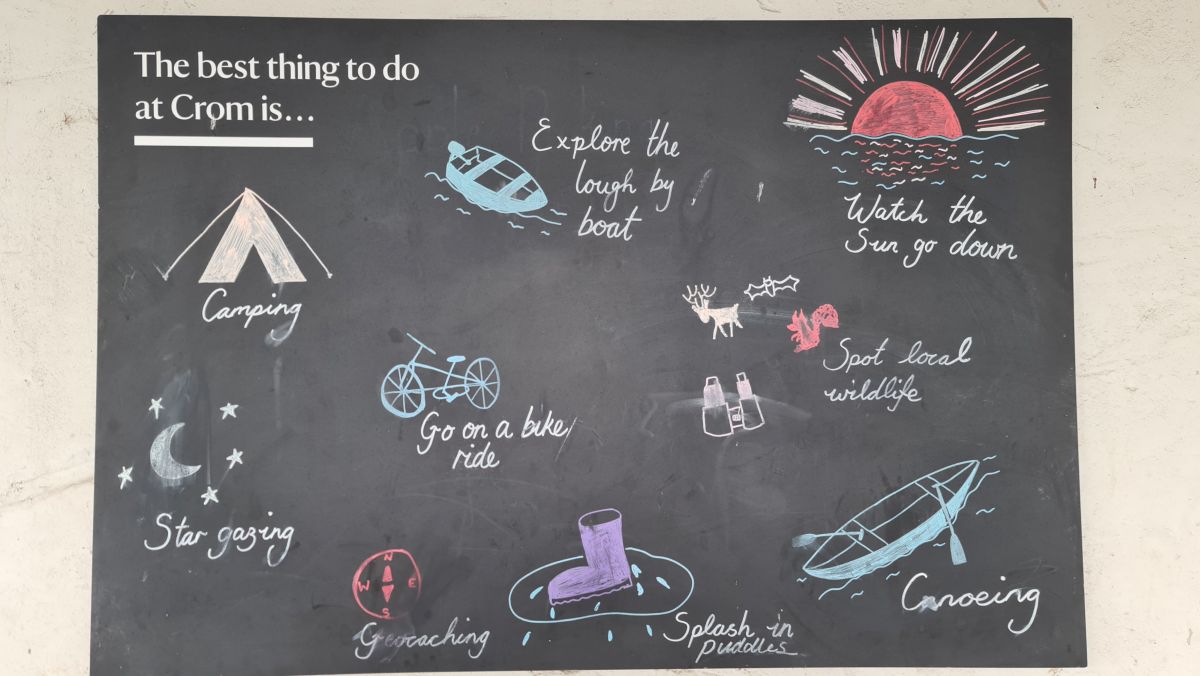 The best thing to do
at Crom is...
Explore the
lough by
boat
Watch the
Sun go down
Camping
Spot local
wildlife
Go on a bike
ride
Star gazing
N
W E
S
Geocaching
Splash in
puddles
Canoeing